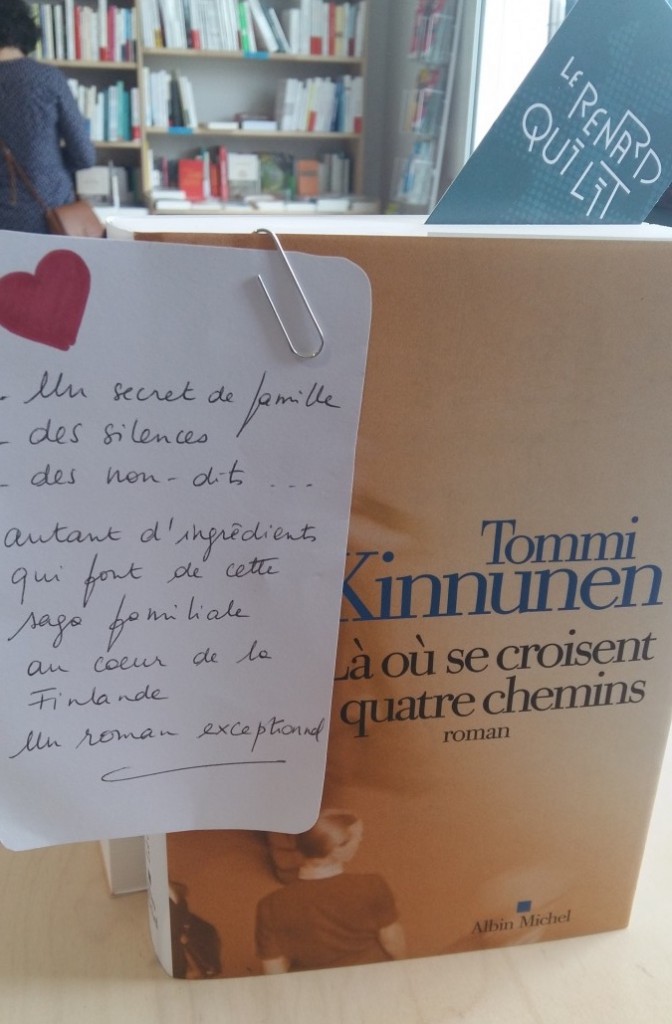 LE RENARD
QUI LIT
- Un secret de famille
- des silences
- des non-dits ...
autant d'ingrédients
qui font de cette
saga familiale
au coeur de la
Finlande
Un roman exceptionnel
Tommi
Kinnunen
Là où se croisent
quatre chemins
roman
Albin Michel